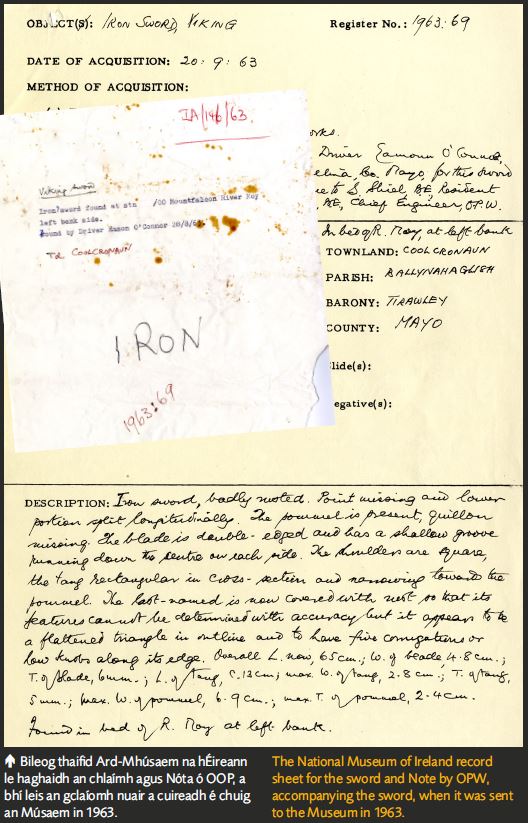 OBJECT(S): IRON SWORD, VIKING Register No.: 1963:69
DATE OF ACQUISITION: 20: 9: 63
METHOD OF ACQUISITION:
IA/146/63.
Viking sword
Iron sword found at stn /00 Mountfalcon River Moy
left bank side.
Found by Driver Eamon O'Connor 20/8/63
Td COOLCRONAUN
IRON
1963:69
orks.
Driver Eamonn O'Connor,
Co. Mayo, for this sword
to S. Shiel, BE Resident
BE, Chief Engineer, OPW.
In bed of R. Moy, at left bank
TOWNLAND: COOLCRONAUN
PARISH: BALLYNAHAGLISH
BARONY: TIRAWLEY
COUNTY: MAYO
lide(s):
egative(s):
DESCRIPTION: Iron sword, badly rusted. Point missing and lower
portion split longitudinally. The pommel is present, quillon
missing. The blade is double-edged and has a shallow groove
running down the centre on each side. The shoulders are square,
the tang rectangular in cross-section and narrowing towards the
pommel. The last-named is now covered with rust so that its
features cannot be determined with accuracy but it appears to be
a flattened triangle in outline and to have five corrugations or
low knobs along its edge. Overall L. now, 65cm.; W. of blade 4.8cm.;
T. of blade, 6mm.; L. of tang, c.13cm; max. W. of tang, 2.8cm.; T. of tang,
5mm.; max. W. of pommel, 6.9cm.; max. T. of pommel, 2.4cm.
Found in bed of R. Moy at left bank.
Bileog thaifid Ard-Mhúsaem na hÉireann
le haghaidh an chlaímh agus Nóta ó OOP, a
bhí leis an gclaíomh nuair a cuireadh é chuig
an Músaem in 1963.
The National Museum of Ireland record
sheet for the sword and Note by OPW,
accompanying the sword, when it was sent
to the Museum in 1963.